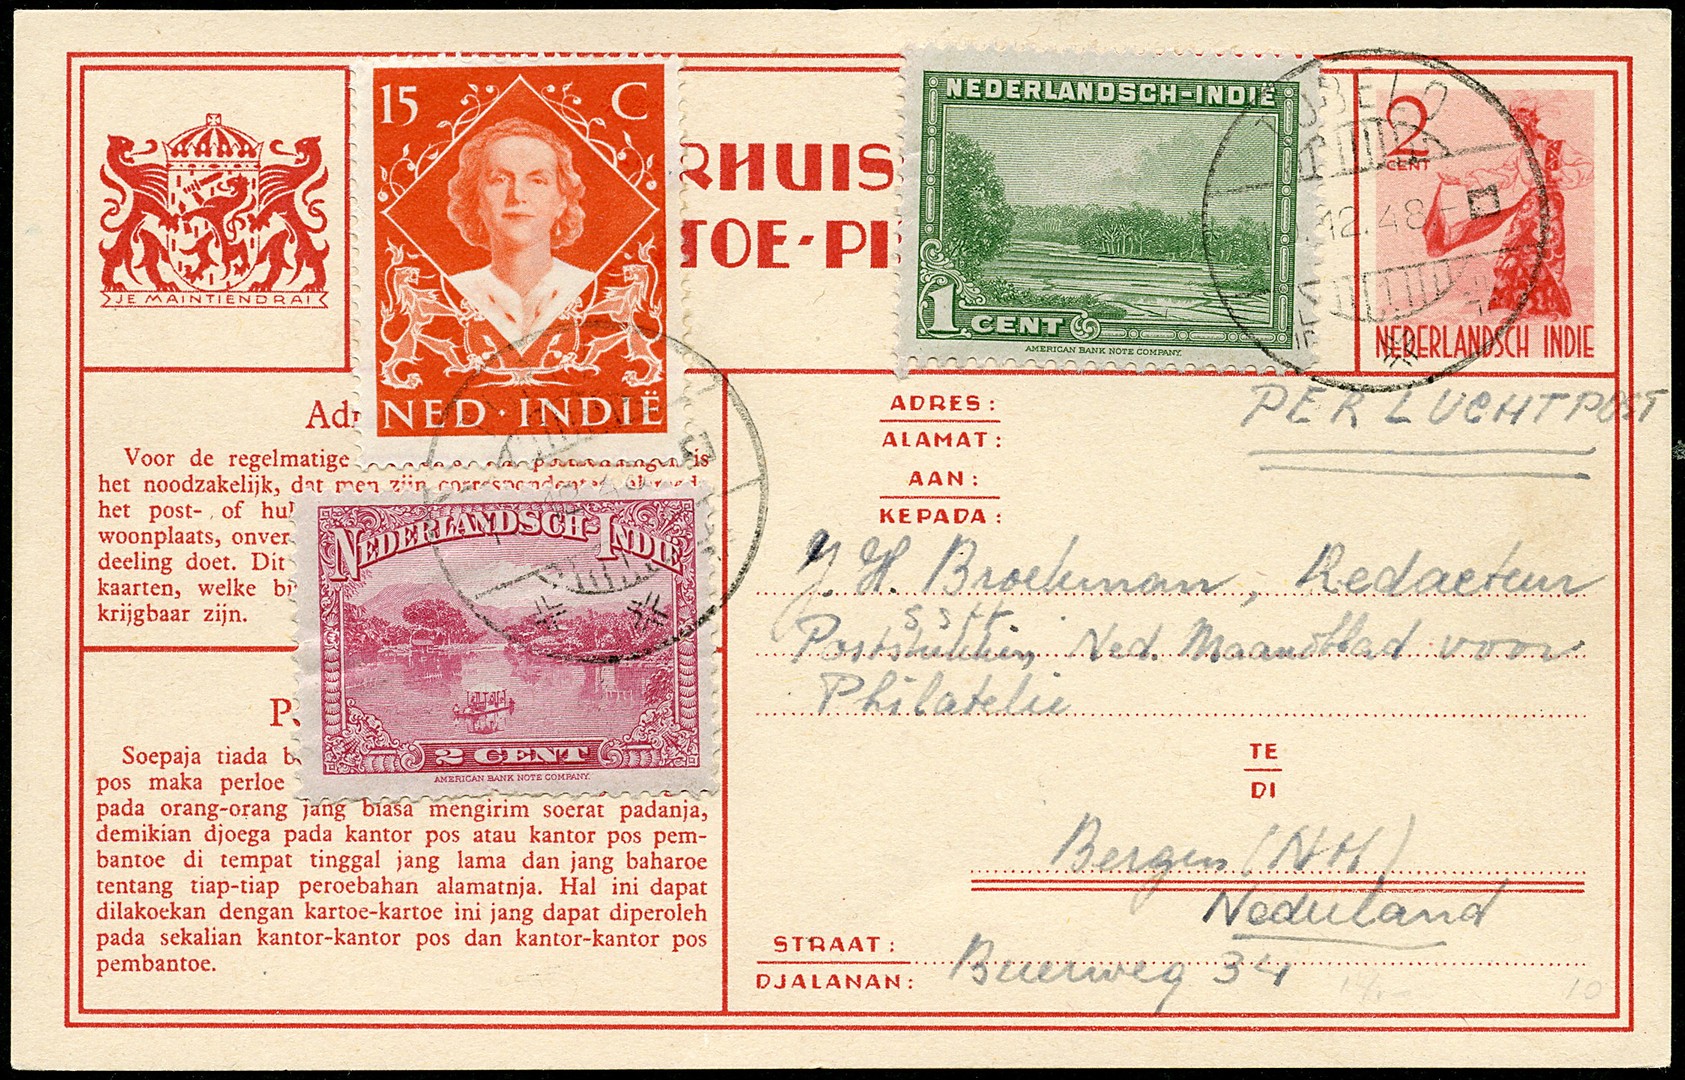 JE MAINTIENDRAI
15 C
NED·INDIË
RHUIS
TOE-PI
NEDERLANDSCH-INDIE
1 CENT
AMERICAN BANK NOTE COMPANY.
TOBELO
12.48
2
CENT
NEDERLANDSCH INDIE
PER LUCHTPOST
Adr
Voor de regelmatige
het noodzakelijk, dat men zijn correspondenten, alsmede
het post-, of hul
woonplaats, onver
deeling doet. Dit
kaarten, welke bi
krijgbaar zijn.
NEDERLANDSCH-INDIË
2 CENT
AMERICAN BANK NOTE COMPANY.
P
Soepaja tiada b
pos maka perloe
pada orang-orang jang biasa mengirim soerat padanja,
demikian djoega pada kantor pos atau kantor pos pem-
bantoe di tempat tinggal jang lama dan jang baharoe
tentang tiap-tiap peroebahan alamatnja. Hal ini dapat
dilakoekan dengan kartoe-kartoe ini jang dapat diperoleh
pada sekalian kantor-kantor pos dan kantor-kantor pos
pembantoe.
ADRES:
ALAMAT:
AAN:
KEPADA:
J. H. Broekman, Redacteur
Poststukken, Ned. Maandblad voor
Philatelie
TE
DI
Bergen (NH)
Nederland
STRAAT:
DJALANAN:
Buerweg 34
10